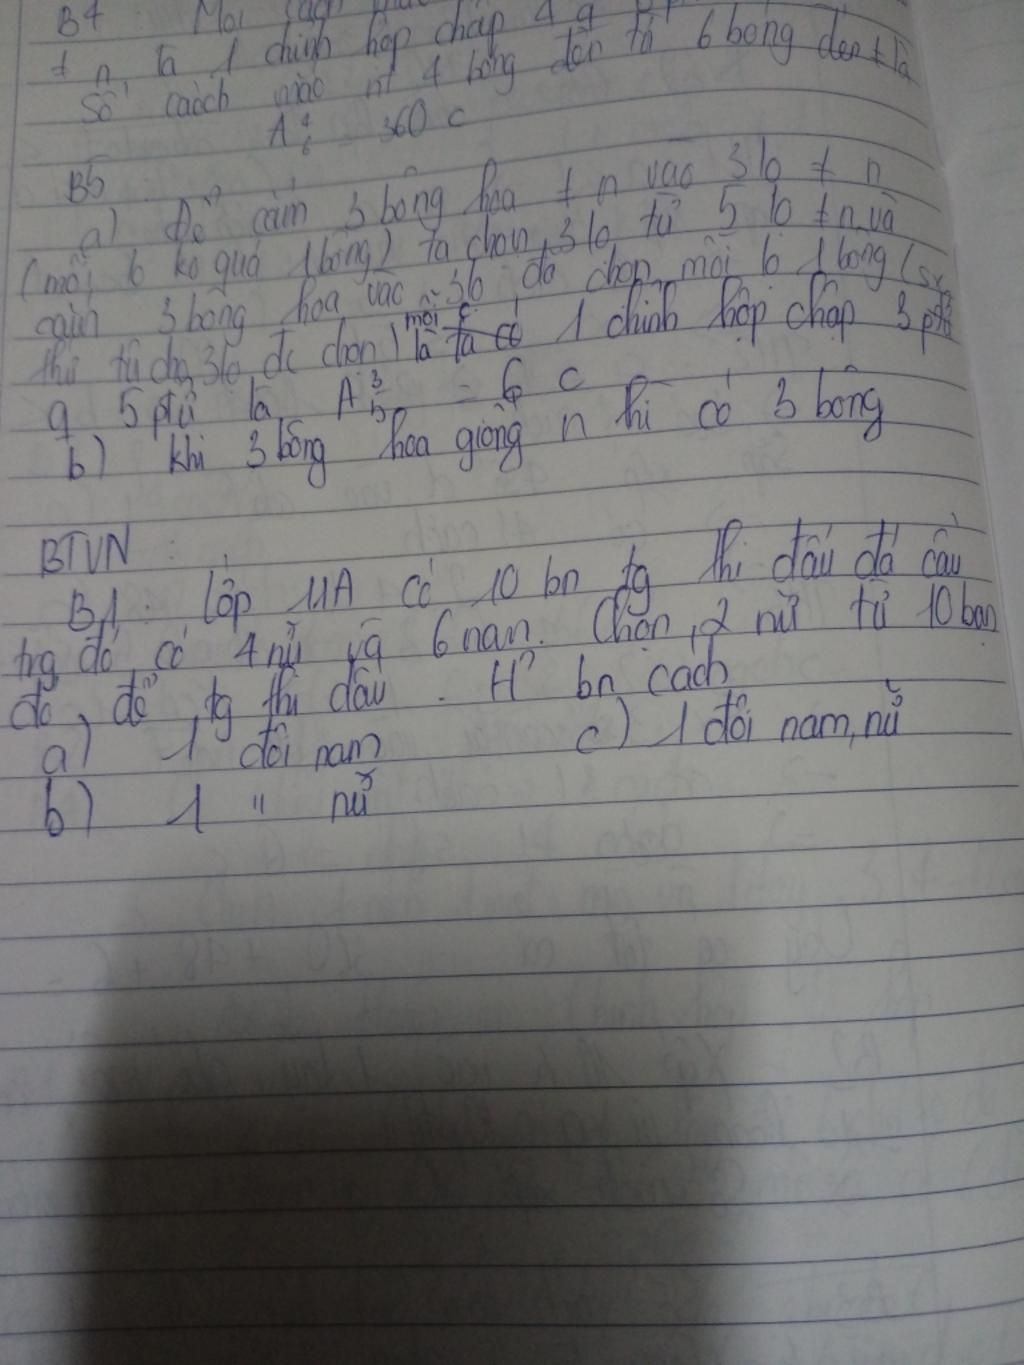 B4: Mỗi cách
≠ n là 1 chỉnh hợp chập 4 q
Số cách mắc nt 4 bóng đèn từ 6 bóng đèn ≠ là
A⁴₆ = 360 c
B5:
a) Để cắm 3 bông hoa ≠ n vào 3 lọ ≠ n
(mỗi lọ ko quá 1 bông) ta chọn 3 lọ từ 5 lọ ≠ n và
cắm 3 bông hoa vào 3 lọ đã chọn, mỗi lọ 1 bông (sx
thứ tự cho 3 lọ đc chọn) mỗi c là ta có 1 chỉnh hợp chập 3 ptử
q 5 ptử là A³₅ = 6 c
b) khi 3 bông hoa giống n thì có 3 bông
BTVN:
B1: Lớp 11A có 10 bn tg thi đấu đá cầu
trg đó có 4 nữ và 6 nam. Chọn 2 nữ từ 10 bạn
đó, để tg thi đấu. H? bn cách
a) 1 đôi nam c) 1 đôi nam, nữ
b) 1 " nữ